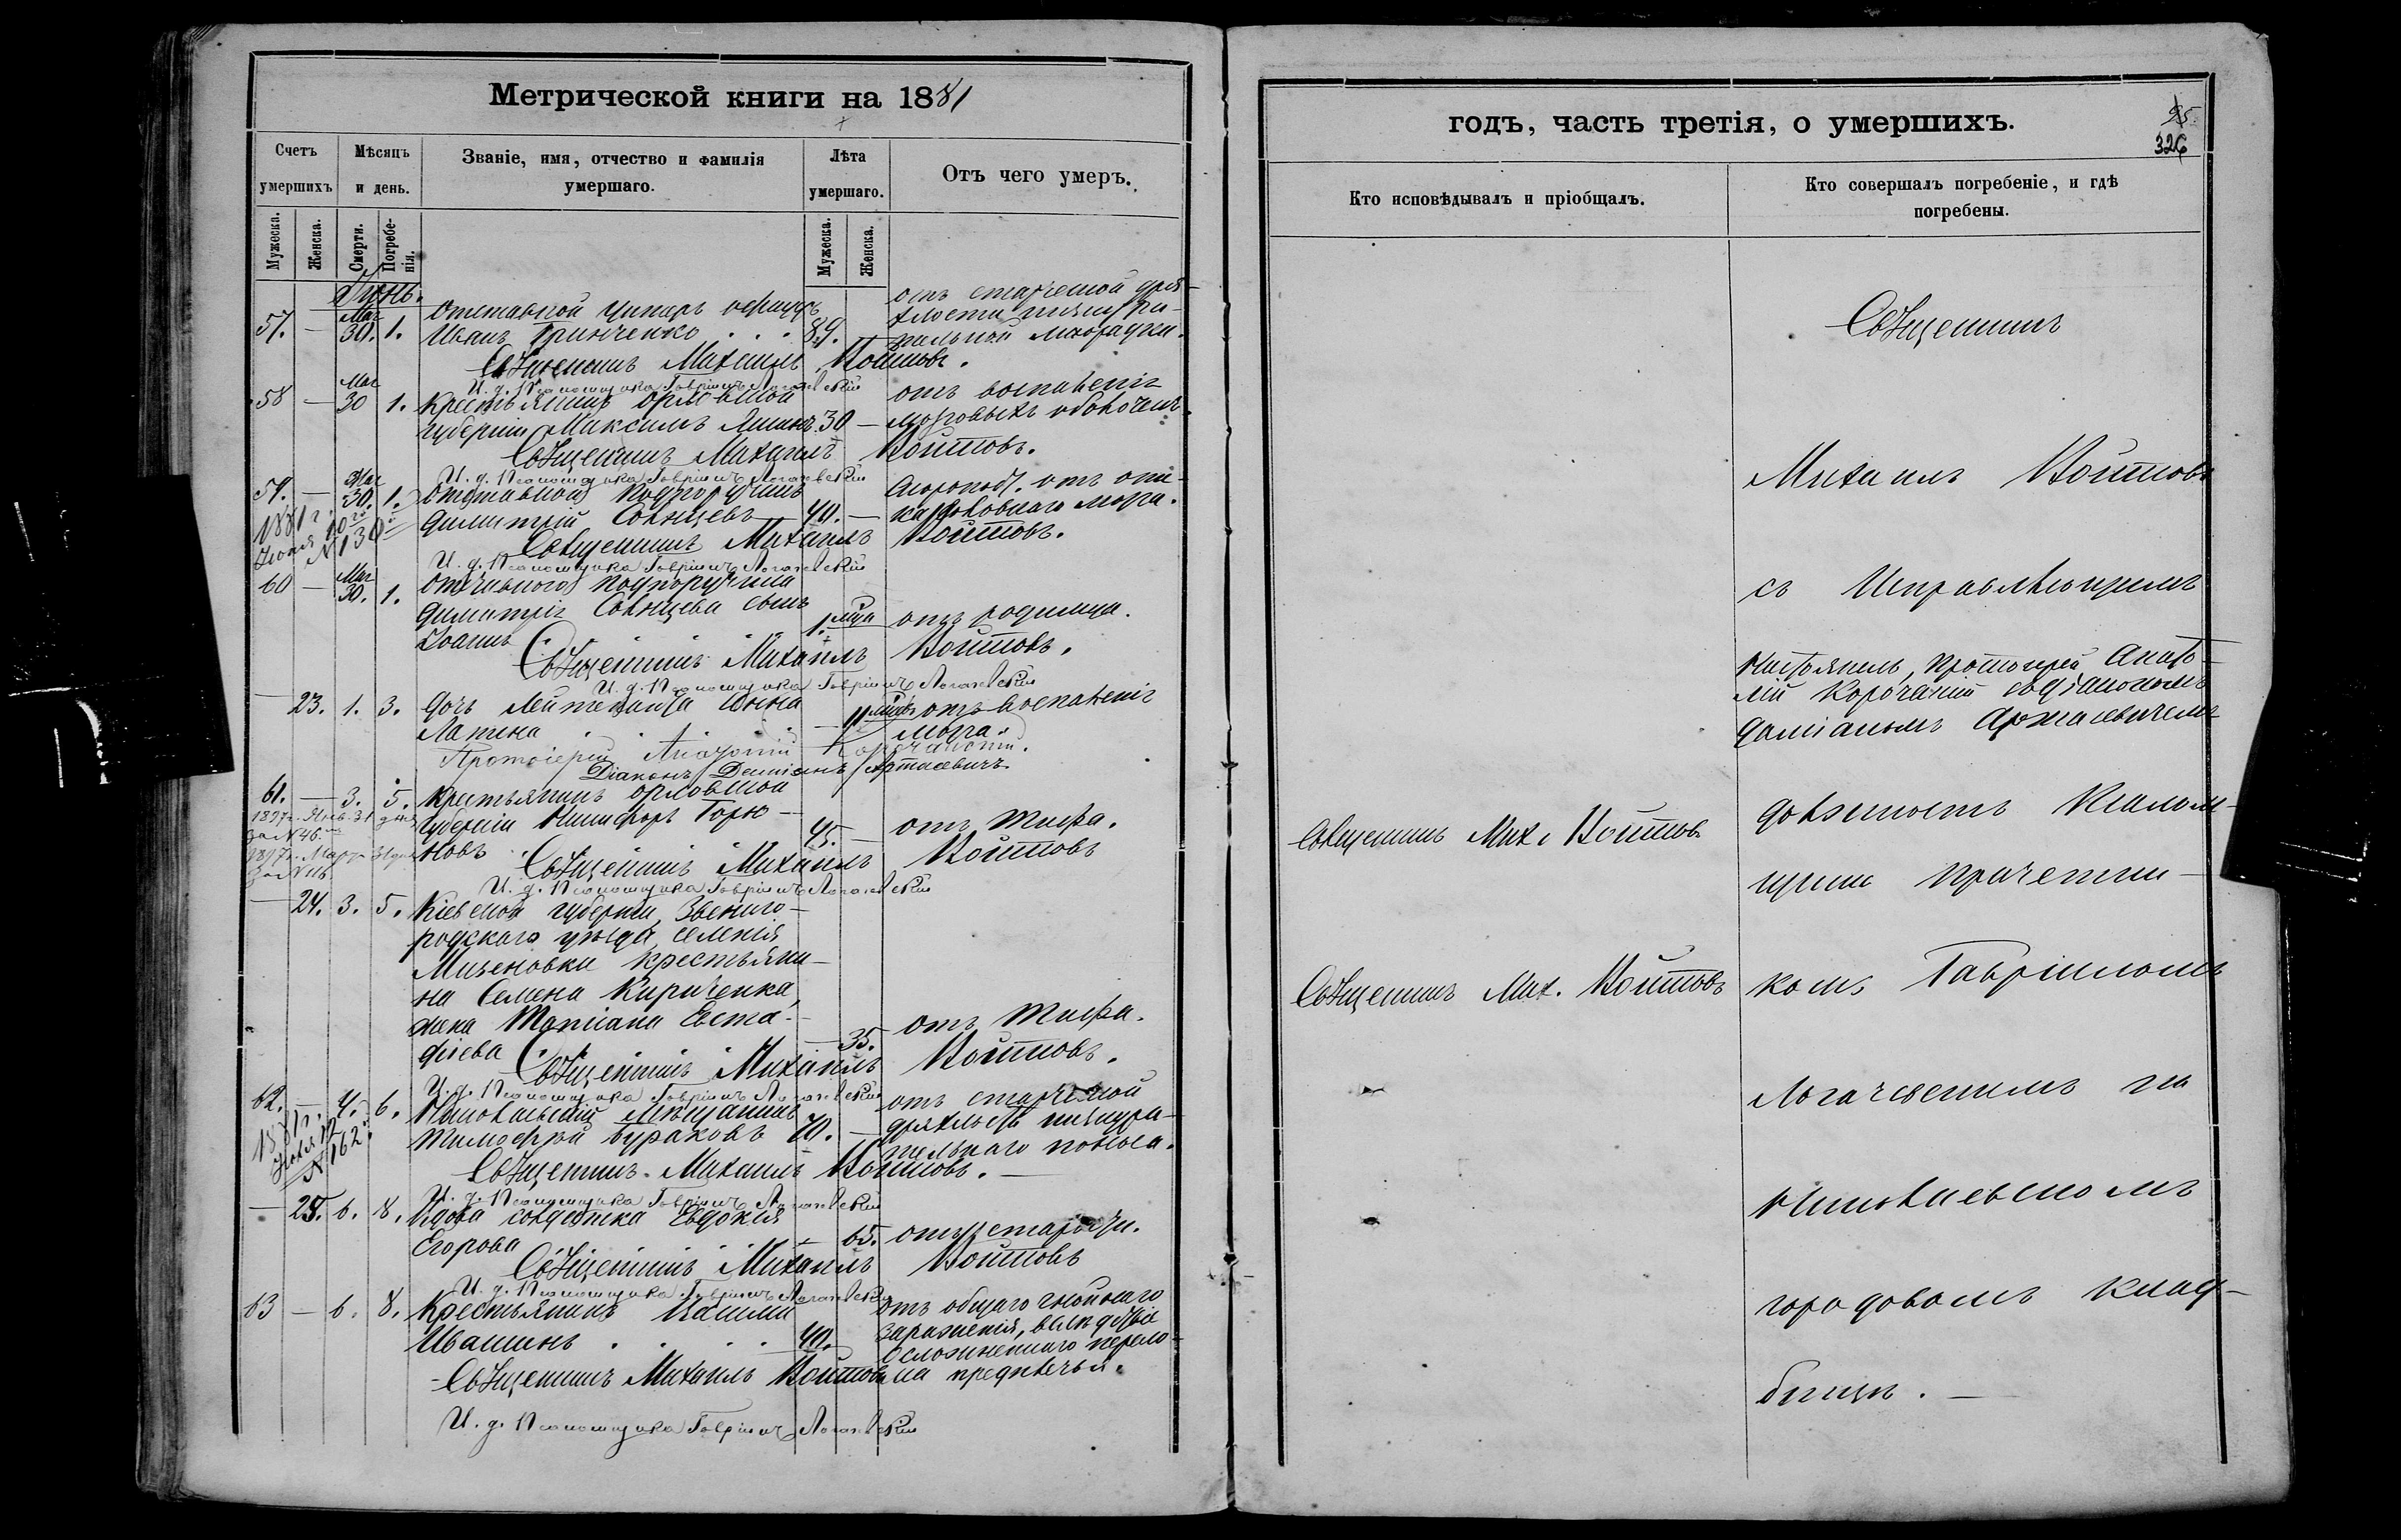 Метрической книги на 1881
Счетъ умершихъ
Мѣсяцъ и день.
Званіе, имя, отчество и фамилія умершаго.
Лѣта умершаго.
Отъ чего умеръ.
Мужеска.
Женска.
Смерти.
Погребенія.
Мужеска.
Женска.
Іюнь.
57. — Мая 30. 1. Отставной унтеръ офицеръ
Иванъ Гринченко . . . 89.
отъ старческой дря-
хлости изнури-
тельной лихорадки.
Священникъ Михаилъ Войтовъ.
И. д. Псаломщика Гавріилъ Логачевскій
58 — Мая 30 1. Крестьянинъ орловской
губерніи Максимъ 30 —
отъ воспаленія
мозговыхъ оболочекъ.
Священникъ Михаилъ Войтовъ.
И. д. Псаломщика Гавріилъ Логачевскій
59. — Мая 30. 1. Отставной подпоручикъ
Димитрій Солнцевъ 40. —
Скоропост. отъ
мозга.
1881 г.
Іюля 20го
№ 130
Священникъ Михаилъ Войтовъ.
И. д. Псаломщика Гавріилъ Логачевскій
60 — Мая 30. 1. Отставного подпоручика
Димитрія Солнцева сынъ
Іоаннъ 1. мца отъ родимца.
Священникъ Михаилъ Войтовъ.
И. д. Псаломщика Гавріилъ Логачевскій
— 23. 1. 3. Дочь Лейтенанта Анна
Лапина . . — 11 мцвъ отъ воспаленія
мозга.
Протоіерей Анатолій Корочанскій.
Діаконъ Даміанъ Артасевичъ
61. — 3. 5. Крестьянинъ орловской
губерніи Никифоръ Горю-
новъ . 45. — отъ тифа.
1897 г. Янв. 31 дня
за № 46.
1897 г. Марта 31 дня
за № 116.
Священникъ Михаилъ Войтовъ
И. д. Псаломщика Гавріилъ Логачевскій
— 24. 3. 5. Кіевской губерніи, Звениго-
родскаго уѣзда, селенія
крестьяни-
на Семена Кириченка,
жена Маріана Евста-
фіева . . — 35. отъ тифа.
Священникъ Михаилъ Войтовъ.
И. д. Псаломщика Гавріилъ Логачевскій
62. — 4. 6. Николаевскій мѣщанинъ
Тимофей Бураковъ 70. —
отъ старческой
дряхлости изнури-
тельнаго поноса.
1881 г.
№ 162
Священникъ Михаилъ Войтовъ. —
И. д. Псаломщика Гавріилъ Логачевскій
— 25. 6. 8. Вдова солдатка Евдокія
Егорова — 65. отъ старости.
Священникъ Михаилъ Войтовъ
И. д. Псаломщика Гавріилъ Логачевскій
63 — 6. 8. Крестьянинъ
Ивашинъ . . . 40. —
отъ общаго гнойнаго
зараженія, вслѣдствіе
осложненнаго перело-
ма предплечья.
Священникъ Михаилъ Войтовъ
И. д. Псаломщика Гавріилъ Логачевскій
годъ, часть третія, о умершихъ.
95
326
Кто исповѣдывалъ и пріобщалъ.
Кто совершалъ погребеніе, и гдѣ погребены.
Священникъ
Михаилъ Войтовъ
съ Исправляющимъ
Протоіерей Анато-
лій Корочанскій съ діакономъ
Даміаномъ Артасевичемъ
Священникъ Мих. Войтовъ
должность Псалом-
щика причетни-
Священникъ Мих. Войтовъ
комъ Гавріиломъ
Логачевскимъ на
Николаевскомъ
городовомъ клад-
бищѣ. —